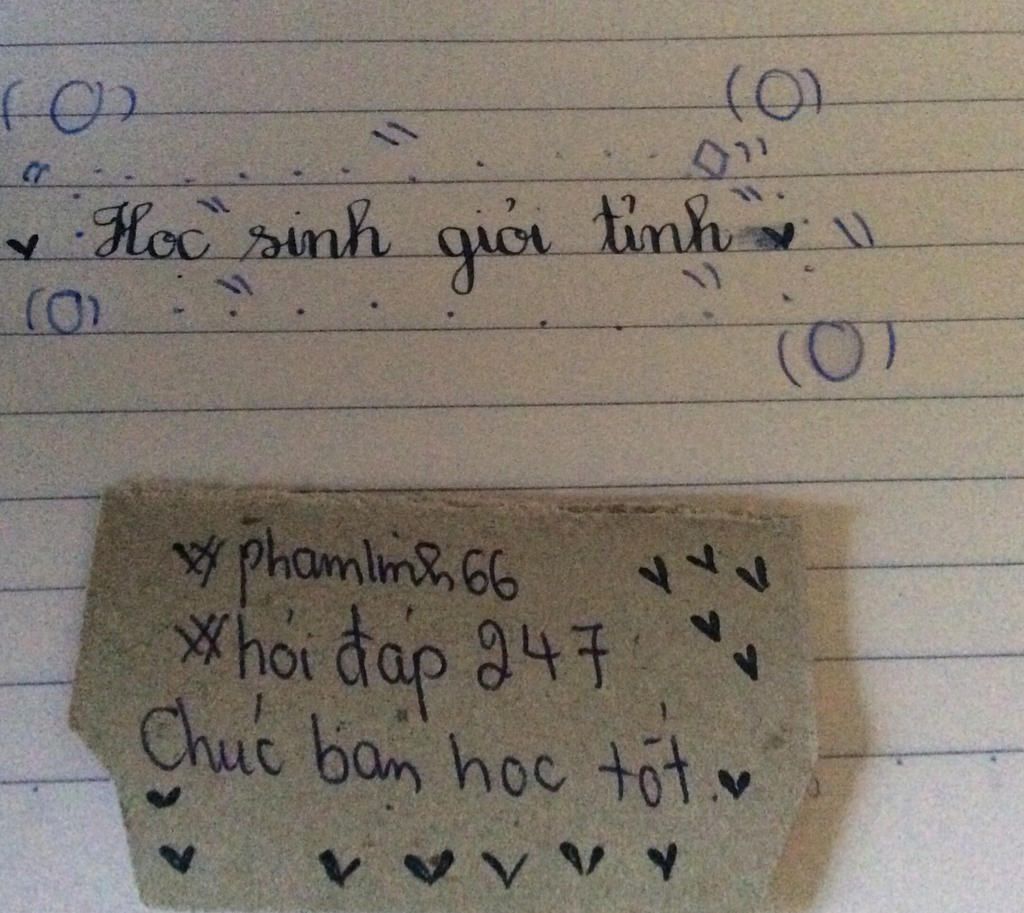 Học sinh giỏi tỉnh
phamlinh66
hỏi đáp 247
Chúc bạn học tốt.